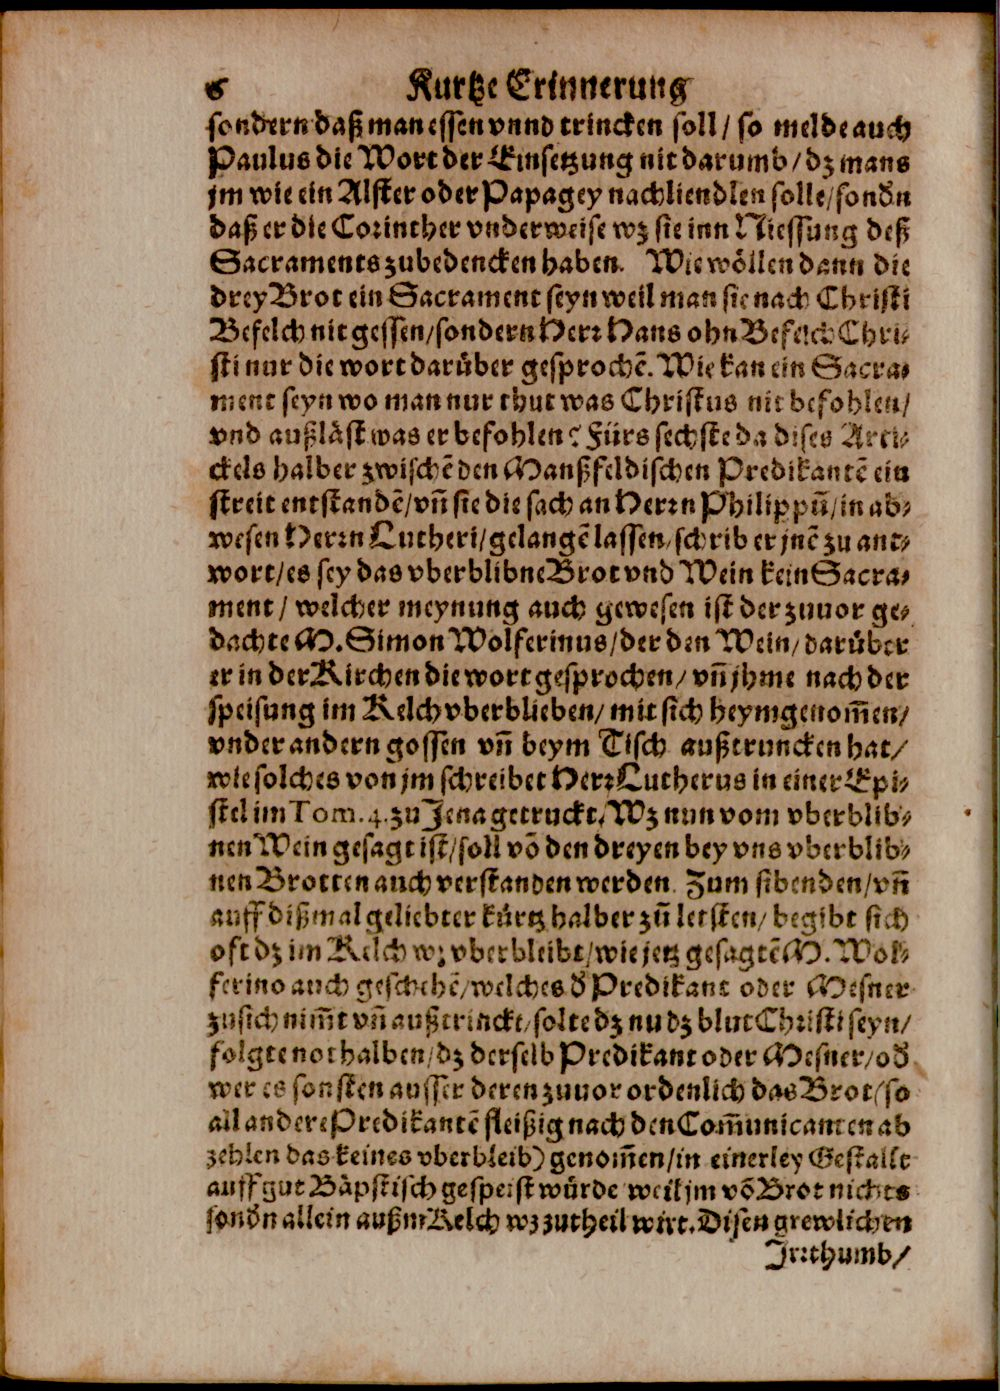 6 Kurtze Erinnerung
sondern daß man essen vnnd trincken soll / so melde auch
Paulus die Wort der Einsetzung nit darumb / dz mans
jm wie ein Alster oder Papagey nachliendlen solle / sondn̄
daß er die Corinther vnderweise wz sie inn Niessung deß
Sacraments zubedencken haben. Wie wöllen dann die
drey Brot ein Sacrament seyn weil man sie nach Christi
Befelch nit gessen / sondern Herr Hans ohn Befelch Chri-
sti nur die wort darüber gesprochē. Wie kan ein Sacra-
ment seyn wo man nur thut was Christus nit befohlen /
vnd außläst was er befohlen? Fürs sechste da dises Arti-
ckels halber zwischē den Manßfeldischen Predikantē ein
streit entstandē / vn̄ sie die sach an Herrn Philippū / in ab-
wesen Herrn Lutheri / gelangē lassen / schrib er jnē zu ant-
wort / es sey das vberblibne Brot vnd Wein kein Sacra-
ment / welcher meynung auch gewesen ist der zuuor ge-
dachte M. Simon Wolferinus / der den Wein / darüber
er in der Kirchen die wort gesprochen / vn̄ jhme nach der
speisung im Kelch vberblieben / mit sich heymgenom̄en /
vnder andern gossen vn̄ beym Tisch außtruncken hat /
wie solches von jm schreibet Herr Lutherus in einer Epi-
stel im Tom. 4. zu Jena getruckt. Wz nun vom vberblib-
nen Wein gesagt ist / soll vō den dreyen bey vns vberblib-
nen Brotten auch verstanden werden. Zum sibenden / vn̄
auff dißmal geliebter kürtz halber zū letsten / begibt sich
oft dz im Kelch wz vberbleibt / wie jetz gesagtē M. Wol-
ferino auch geschehē / welches d̄ Predikant oder Mesner
zusich nim̄t vn̄ außtrinckt / solte dz nu dz blut Christi seyn /
folgte nothalben / dz derselb Predikant oder Mesner / od̄
wer es sonsten ausser deren zuuor ordenlich das Brot (so
all andere Predikantē fleißig nach den Com̄unicanten ab
zehlen das keines vberbleib) genom̄en / in einerley Gestallt
auff gut Bäpstisch gespeist würde weil jm vō Brot nichts
sondn̄ allein außm Kelch wz zutheil wirt. Disen grewlichen
Irrthumb /